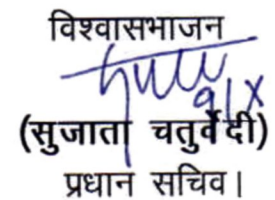 विश्वासभाजन
9/X
(सुजाता चतुर्वेदी)
प्रधान सचिव।